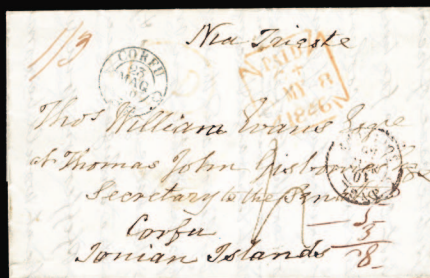 1/3
Via Trieste
CORFU
PAID
MY 8
1846
Thos William Evans Esqre
at Thomas John Gisborne
Secretary to the Senate
Corfu
Ionian Islands
5
3
8